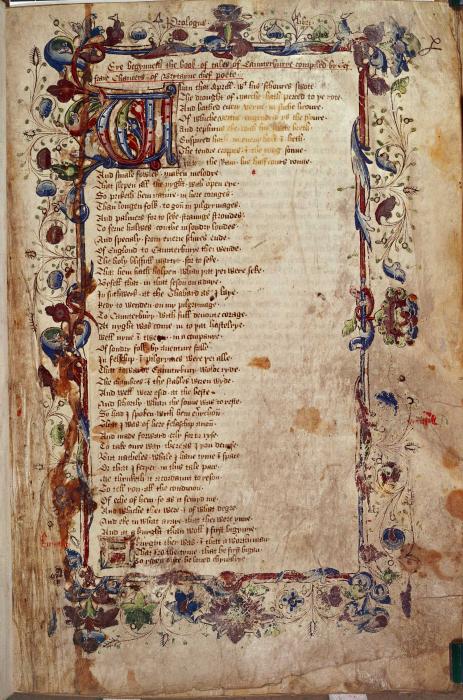 Prologus libri
Here begynneth the book of tales of Caunterburye compiled by
Chaucers of Brytayne chef poete
Whan that Aprille with his schoures swote
The drought of marche hath perced to þe rote
And bathed euery veyne in suche licoure
Of whiche vertu engendred is the floure
And zephirus eke with his swete breth
Enspired hath in euery holt & heth
The tendre croppes & the ȝong sonne
in the Ram his half cours ronne
And smale foules maken melodye
That slepen all the nyght with open eye
So priketh hem nature in her corages
Than longen folk to gon in pilgrymages
And palmers for to seke straunge strondes
To ferne halwes couthe in sondry londes
And specialy from euery schires ende
Of Engelond to Caunterbury thei wende
The holy blisfull martyr for to seke
That hem hath holpen whan þat þei were seke
Byfell that in that seson on a day
In Suthwerk at the Tabard as I laye
Redy to wenden on my pilgrymage
To Caunterbury with full deuoute corage
At nyght was come in to þat hostelrye
Well nyne & twenty in a companye
Of sondry folk by auenture falle
In felschip & pilgrymes were þei alle
That toward Caunterbury wolde ryde
The chambres & the stables weren wyde
And well were esed at the beste
And schortly whan the sonne was to reste
So had I spoken with hem euerychon
That I was of here felaschip anon
And made forward erly for to ryse
To take oure way there as I ȝou deuyse
But natheles while I haue tyme & space
Or that I ferþer in this tale pace
Me thynketh it acordaunt to reson
To tell ȝou all the condicion
Of eche of hem so as it semed me
And whiche thei were & of what degre
And eke in what array that thei were ynne
And at a knyght than woll I first bygynne
A knyght ther was & that a worthi man
That fro the tyme that he first bigan
To ryden oute he loued chyualrye